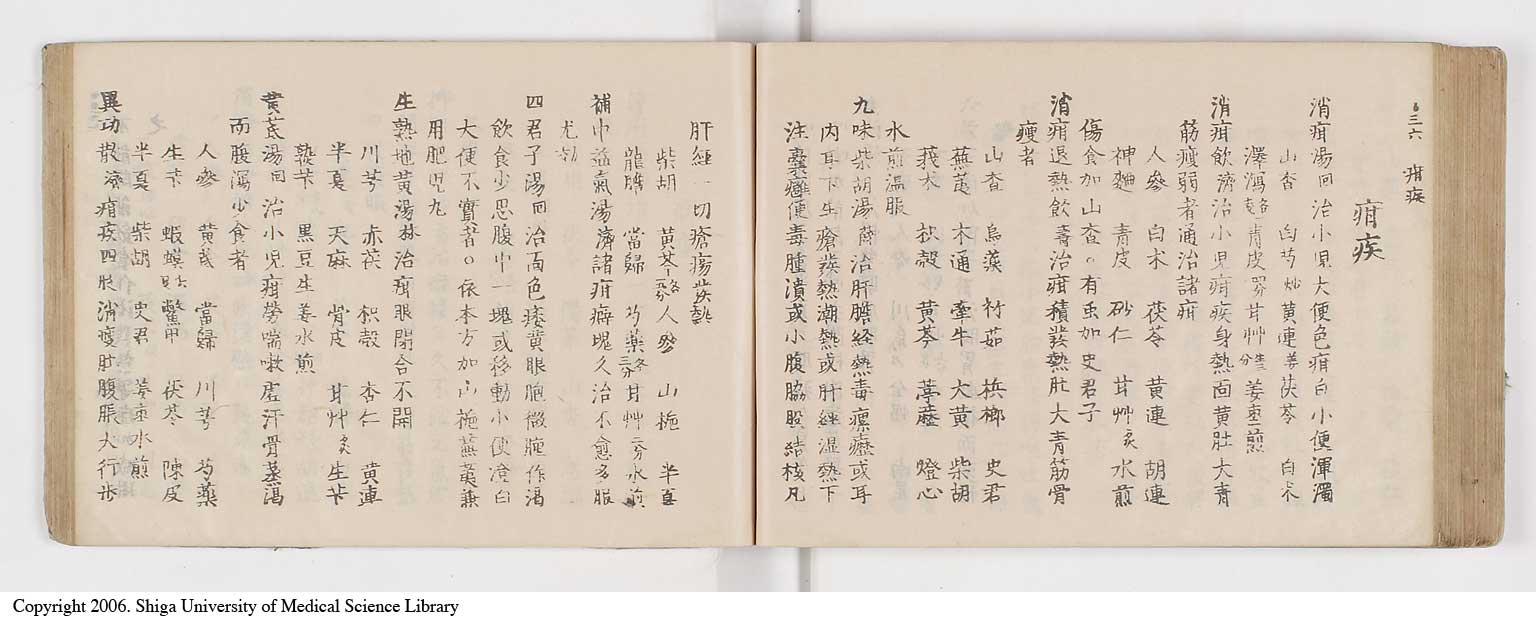 三六 疳疾
疳疾
消疳湯回治小児大便色疳白小便渾濁
山査 白芍炒 黄連姜茯苓 白朮
澤瀉各青皮四分甘艸生姜棗煎
消疳飲済治小児疳疾身熱面黄肚大青
筋瘦弱者通治諸疳
人參 白朮 茯苓 黄連 胡連
神麯 青皮 砂仁 甘艸炙水煎
傷食加山査。有虫加史君子
消疳退熱飲 治疳積發熱肚大青筋骨
瘦者
山査 烏薬 竹茹 梹榔 史君
蕪荑 木通 牽牛 大黄 柴胡
莪朮 枳殻 黄芩 葶藶 燈心
水煎温服
九味柴胡湯 治肝膽経熱毒瘰癧或耳
内耳下生瘡發熱潮熱或肝経湿熱下
注嚢癰便毒腫潰或小腹脇股結核凡
肝經一切瘡瘍發熱
柴胡 黄芩各 人參 山梔 半夏
龍膽 當歸 芍薬各 甘艸 水煎
補中益氣湯済諸疳癖塊久治不愈多服
尤効
四君子湯回治面色痿黄眼胞微腫作渇
飲食少思腹中一塊或移動小便澄白
大便不實者。依本方加山梔蕪荑兼
用肥児丸
生熟地黄湯 治疳眼閉合不開
川芎 赤茯 枳殻 杏仁 黄連
半夏 天麻 骨皮 甘艸炙 生芐
熟芐 黒豆生姜水煎
黄芪湯回治小児疳勞喘嗽虚汗骨蒸渇
而腹瀉少食者
人參 黄芪 當歸 川芎 芍薬
生芐 蝦蟆 鱉甲 茯苓 陳皮
半夏 柴胡 史君 姜棗水煎
異功散済疳疾四肢消瘦肚腹脹大行歩
Copyright 2006. Shiga University of Medical Science Library